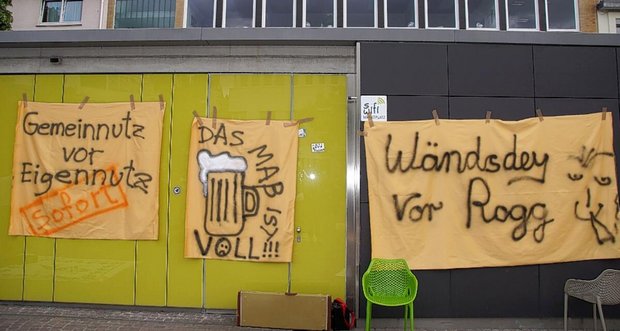 Gemeinnutz
vor
Eigennutz
sofort
DAS MAß IST
VOLL!!!
Wändsdey
vor Rogg